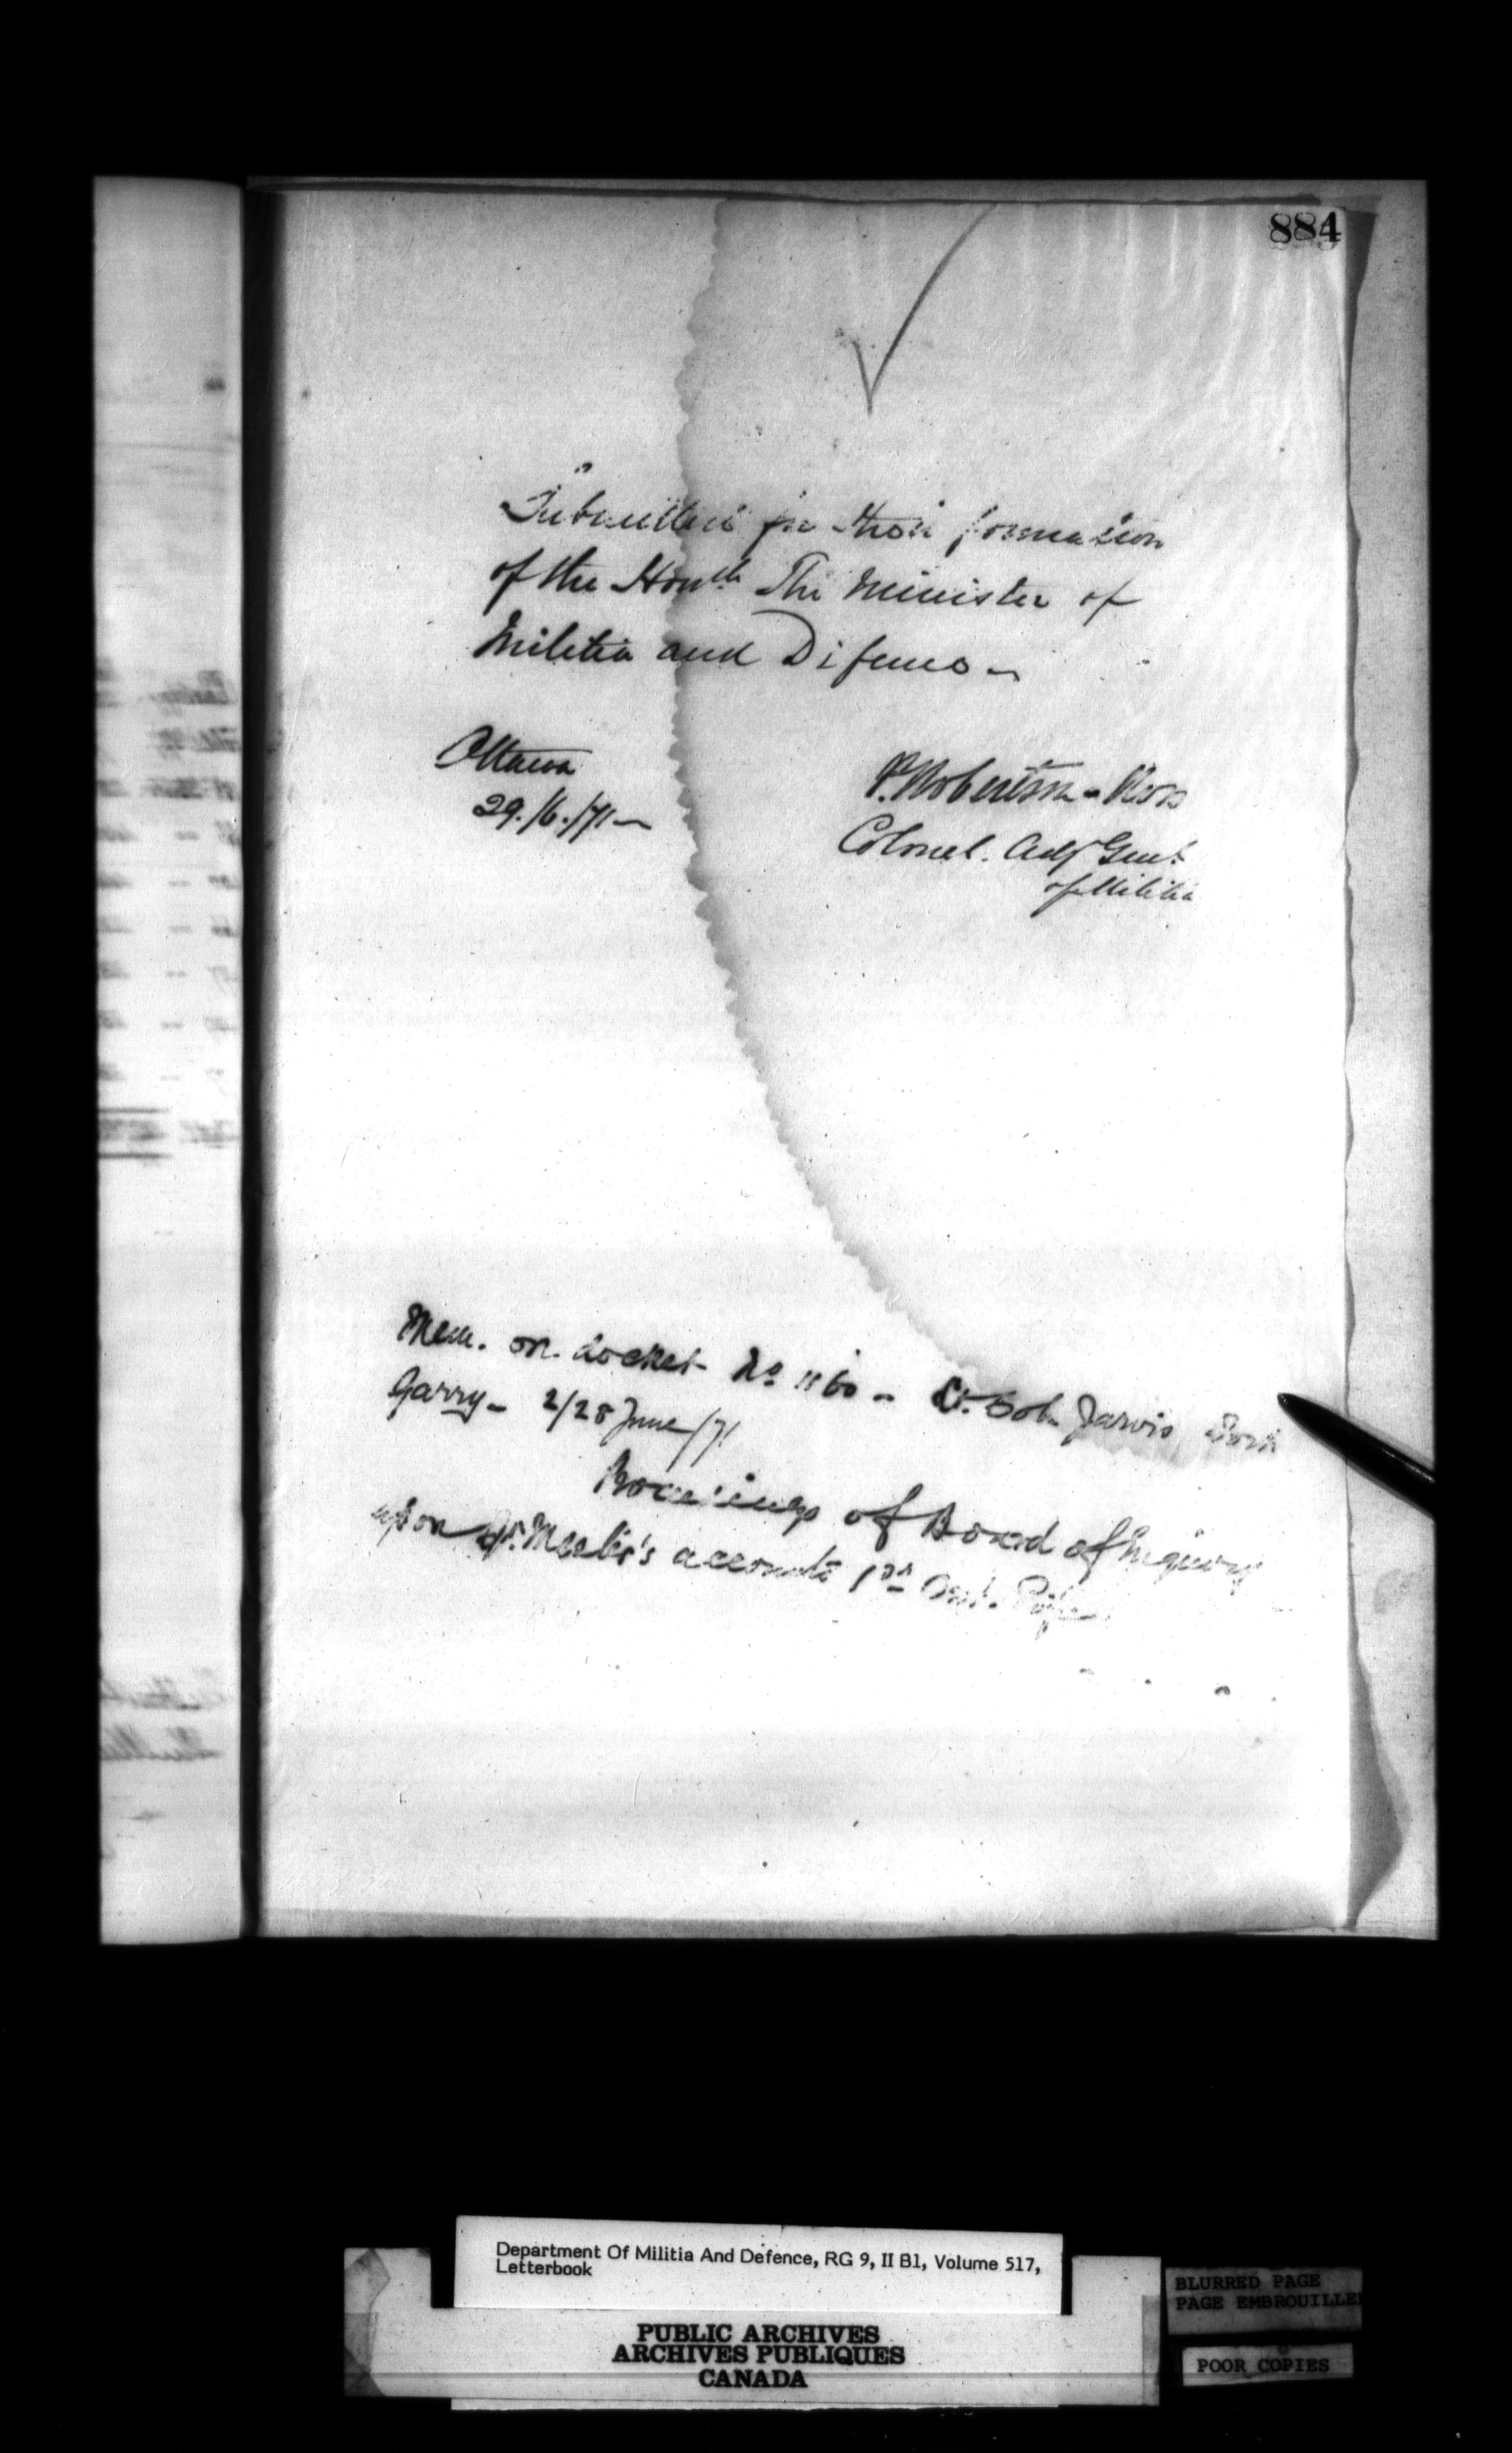 884
Submitted for the information
of the Honble The Minister of
Militia and Defence
Ottawa
29./6./71
P. Robertson-Ross
Colonel. Adjt Genl
of Militia
Mem. on docket No 1160 - Lt. Col. Jarvis Fort
Garry - 2/28 June/71
Proceedings of Board of Inquiry
upon accounts 1st Ont. Rifles
Department Of Militia And Defence, RG 9, II B1, Volume 517,
Letterbook
BLURRED PAGE
PAGE EMBROUILLE
PUBLIC ARCHIVES
ARCHIVES PUBLIQUES
CANADA
POOR COPIES